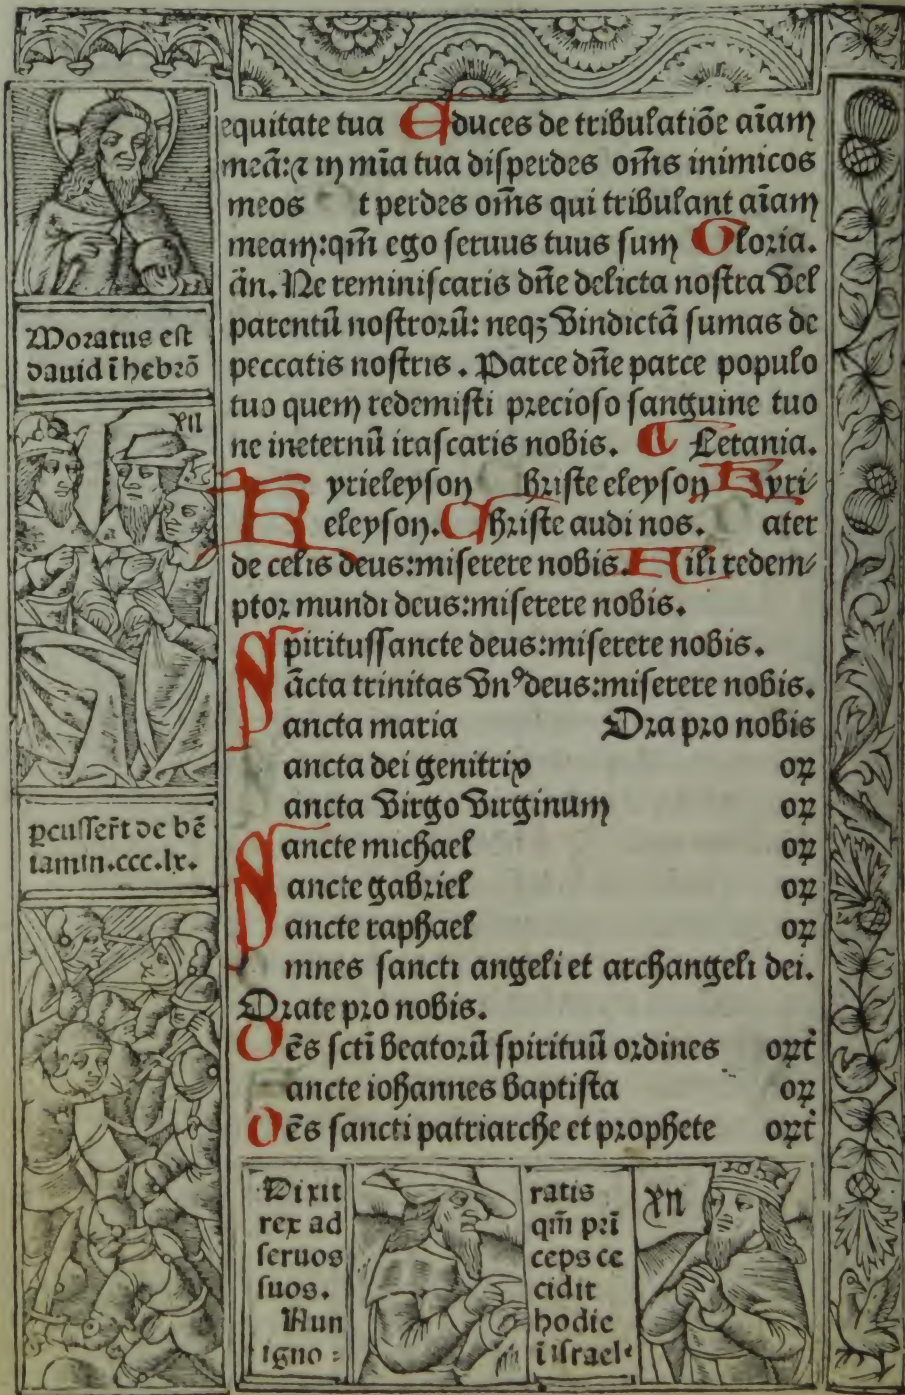 equitate tua Educes de tribulatiõe aĩam
meã:⁊ in mĩa tua disperdes om̃s inimicos
meos t perdes om̃s qui tribulant aĩam
meam:qm̃ ego seruus tuus sum Gloria.
ãn. Ne reminiscaris dñe delicta nostra vel
parentũ nostrorũ: neqꝫ vindictã sumas de
peccatis nostris. Parce dñe parce populo
tuo quem redemisti precioso sanguine tuo
ne ineternũ irascaris nobis. ¶ Letania.
Kyrieleyson hriste eleyson Kyri-
eleyson. Christe audi nos. ater
de celis deus:miserere nobis. Fili redem-
ptor mundi deus:miserere nobis.
Spiritussancte deus:miserere nobis.
Sãcta trinitas vnꝰ deus:miserere nobis.
Sancta maria Ora pro nobis
ancta dei genitrix oꝝ
ancta virgo virginum oꝝ
Sancte michael oꝝ
Sancte gabriel oꝝ
Sancte raphael oꝝ
mnes sancti angeli et archangeli dei.
Orate pro nobis.
Oẽs scti beatorũ spirituũ ordines oꝝt
ancte iohannes baptista oꝝ
Oẽs sancti patriarche et prophete oꝝt
Moratus est
dauid ĩ hebrõ
ꝑcusser̃t de bẽ
iamin.ccc.lx.
Dixit
rex ad
seruos
suos.
Nun
igno:
ratis
qm̃ pri
ceps ce
cidit
hodie
ĩ israel